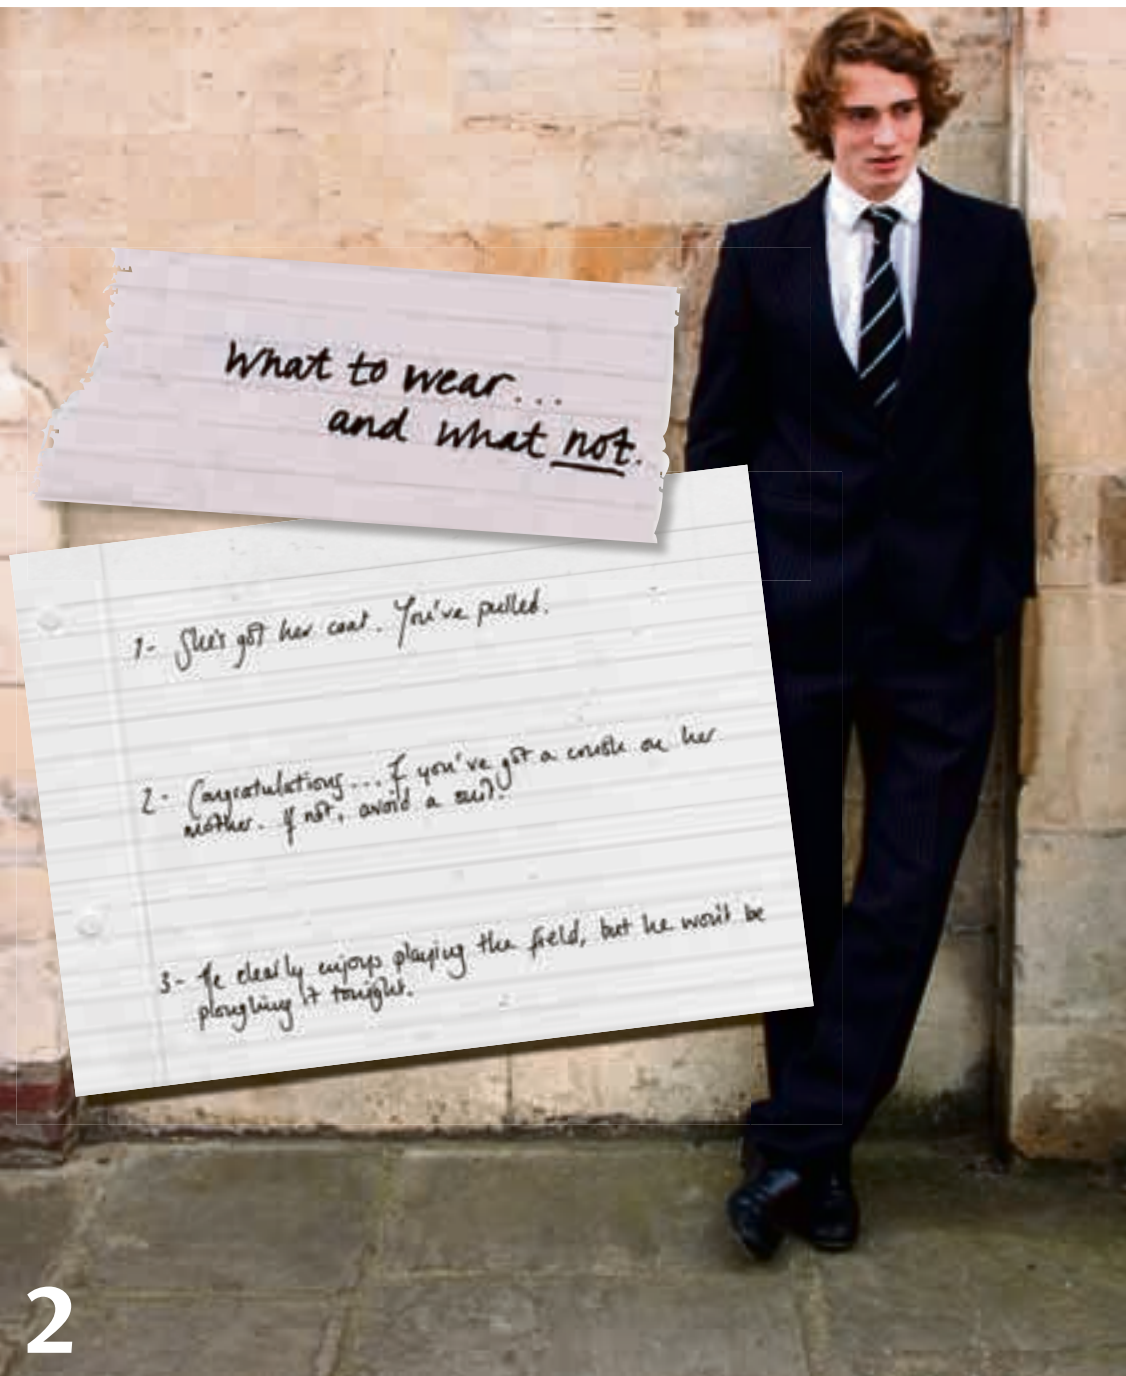 What to wear...
and what not.
1- She's got her coat. You've pulled.
2- Congratulations... If you've got a crush on her
mother. If not, avoid a suit.
3- He clearly enjoys playing the field, but he won't be
ploughing it tonight.
2